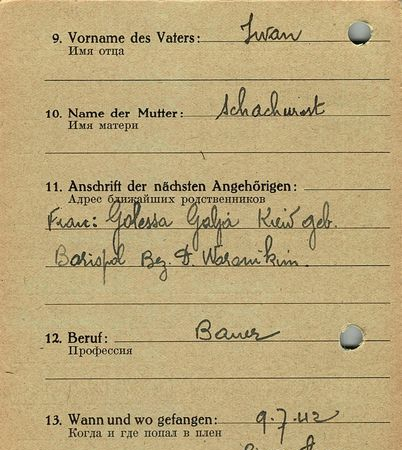 9. Vorname des Vaters: Iwan
Имя отца
10. Name der Mutter: Schachurst
Имя матери
11. Anschrift der nächsten Angehörigen:
Адрес ближайших родственников
Frau: Golessa Galja Kiew geb.
Borispol Bez. D. Woronikim.
12. Beruf: Bauer
Профессия
13. Wann und wo gefangen: 9.7.42
Когда и где попал в плен